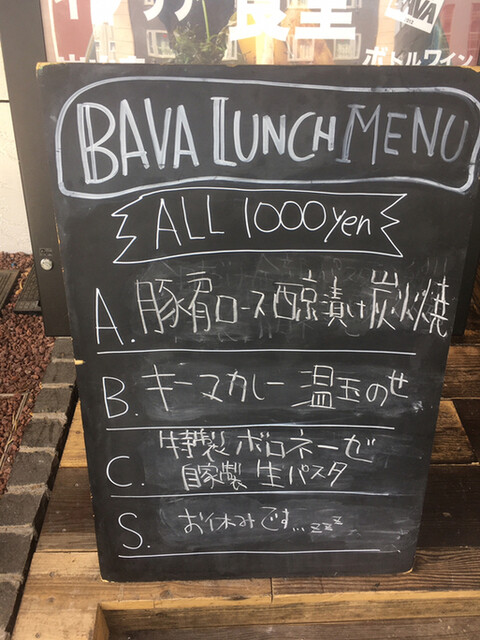 イタリア食堂
BAVA
ボトルワイン
BAVA LUNCH MENU
ALL 1000yen
A. 豚肩ロース西京漬け炭火焼
B. キーマカレー 温玉のせ
C. 特製ボロネーゼ
自家製 生パスタ
S. お休みです... zzz